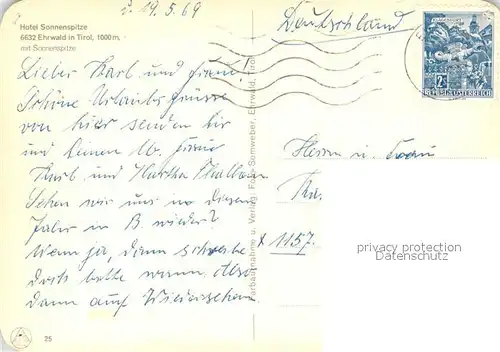 d. 19.5.69
Hotel Sonnenspitze
6632 Ehrwald in Tirol, 1000 m,
mit Sonnenspitze
Deutschland
Lieber Karl und Frau!
Schöne Urlaubsgrüsse
von hier senden Dir
und Deiner lb. Frau
Karl und Martha
Sehen wir uns in diesem
Jahr in B. wieder?
Wenn ja, dann schreibe
doch bitte wann. Also
dann auf Wiedersehen
25
Farbaufnahme u. Verlag: Somweber, Ehrwald, Tirol
2S
REPUBLIK ÖSTERREICH
Herrn u. Frau
Ka
x 1157
privacy protection
Datenschutz